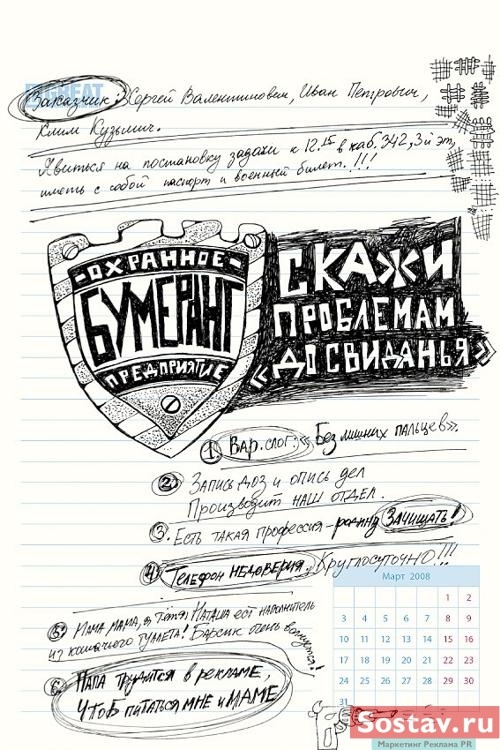 Заказчик: Сергей Валентинович, Иван Петрович,
Клим Кузьмич.
Явиться на постановку задачи к 12.15 в каб. 342, 3й эт,
иметь с собой паспорт и военный билет.!!!
ОХРАННОЕ
БУМЕРАНГ
ПРЕДПРИЯТИЕ
СКАЖИ
ПРОБЛЕМАМ
«ДО СВИДАНЬЯ»
1. Вар. слог: «Без лишних пальцев».
2. Запись доз и опись дел
Производит наш отдел.
3. Есть такая профессия - родину Зачищать!
4. Телефон недоверия. Круглосуточно!!!
5. Мама мама, а тётя Наташа ест наполнитель
из кошачьего туалета! Барсик очень волнуется!
6. Папа трудится в рекламе,
Чтоб питаться мне и маме.
Март 2008
1 2
3 4 5 6 7 8 9
10 11 12 13 14 15 16
17 18 19 20 21 22 23
24 25 26 27 28 29 30
31
Sostav.ru
Маркетинг Реклама PR